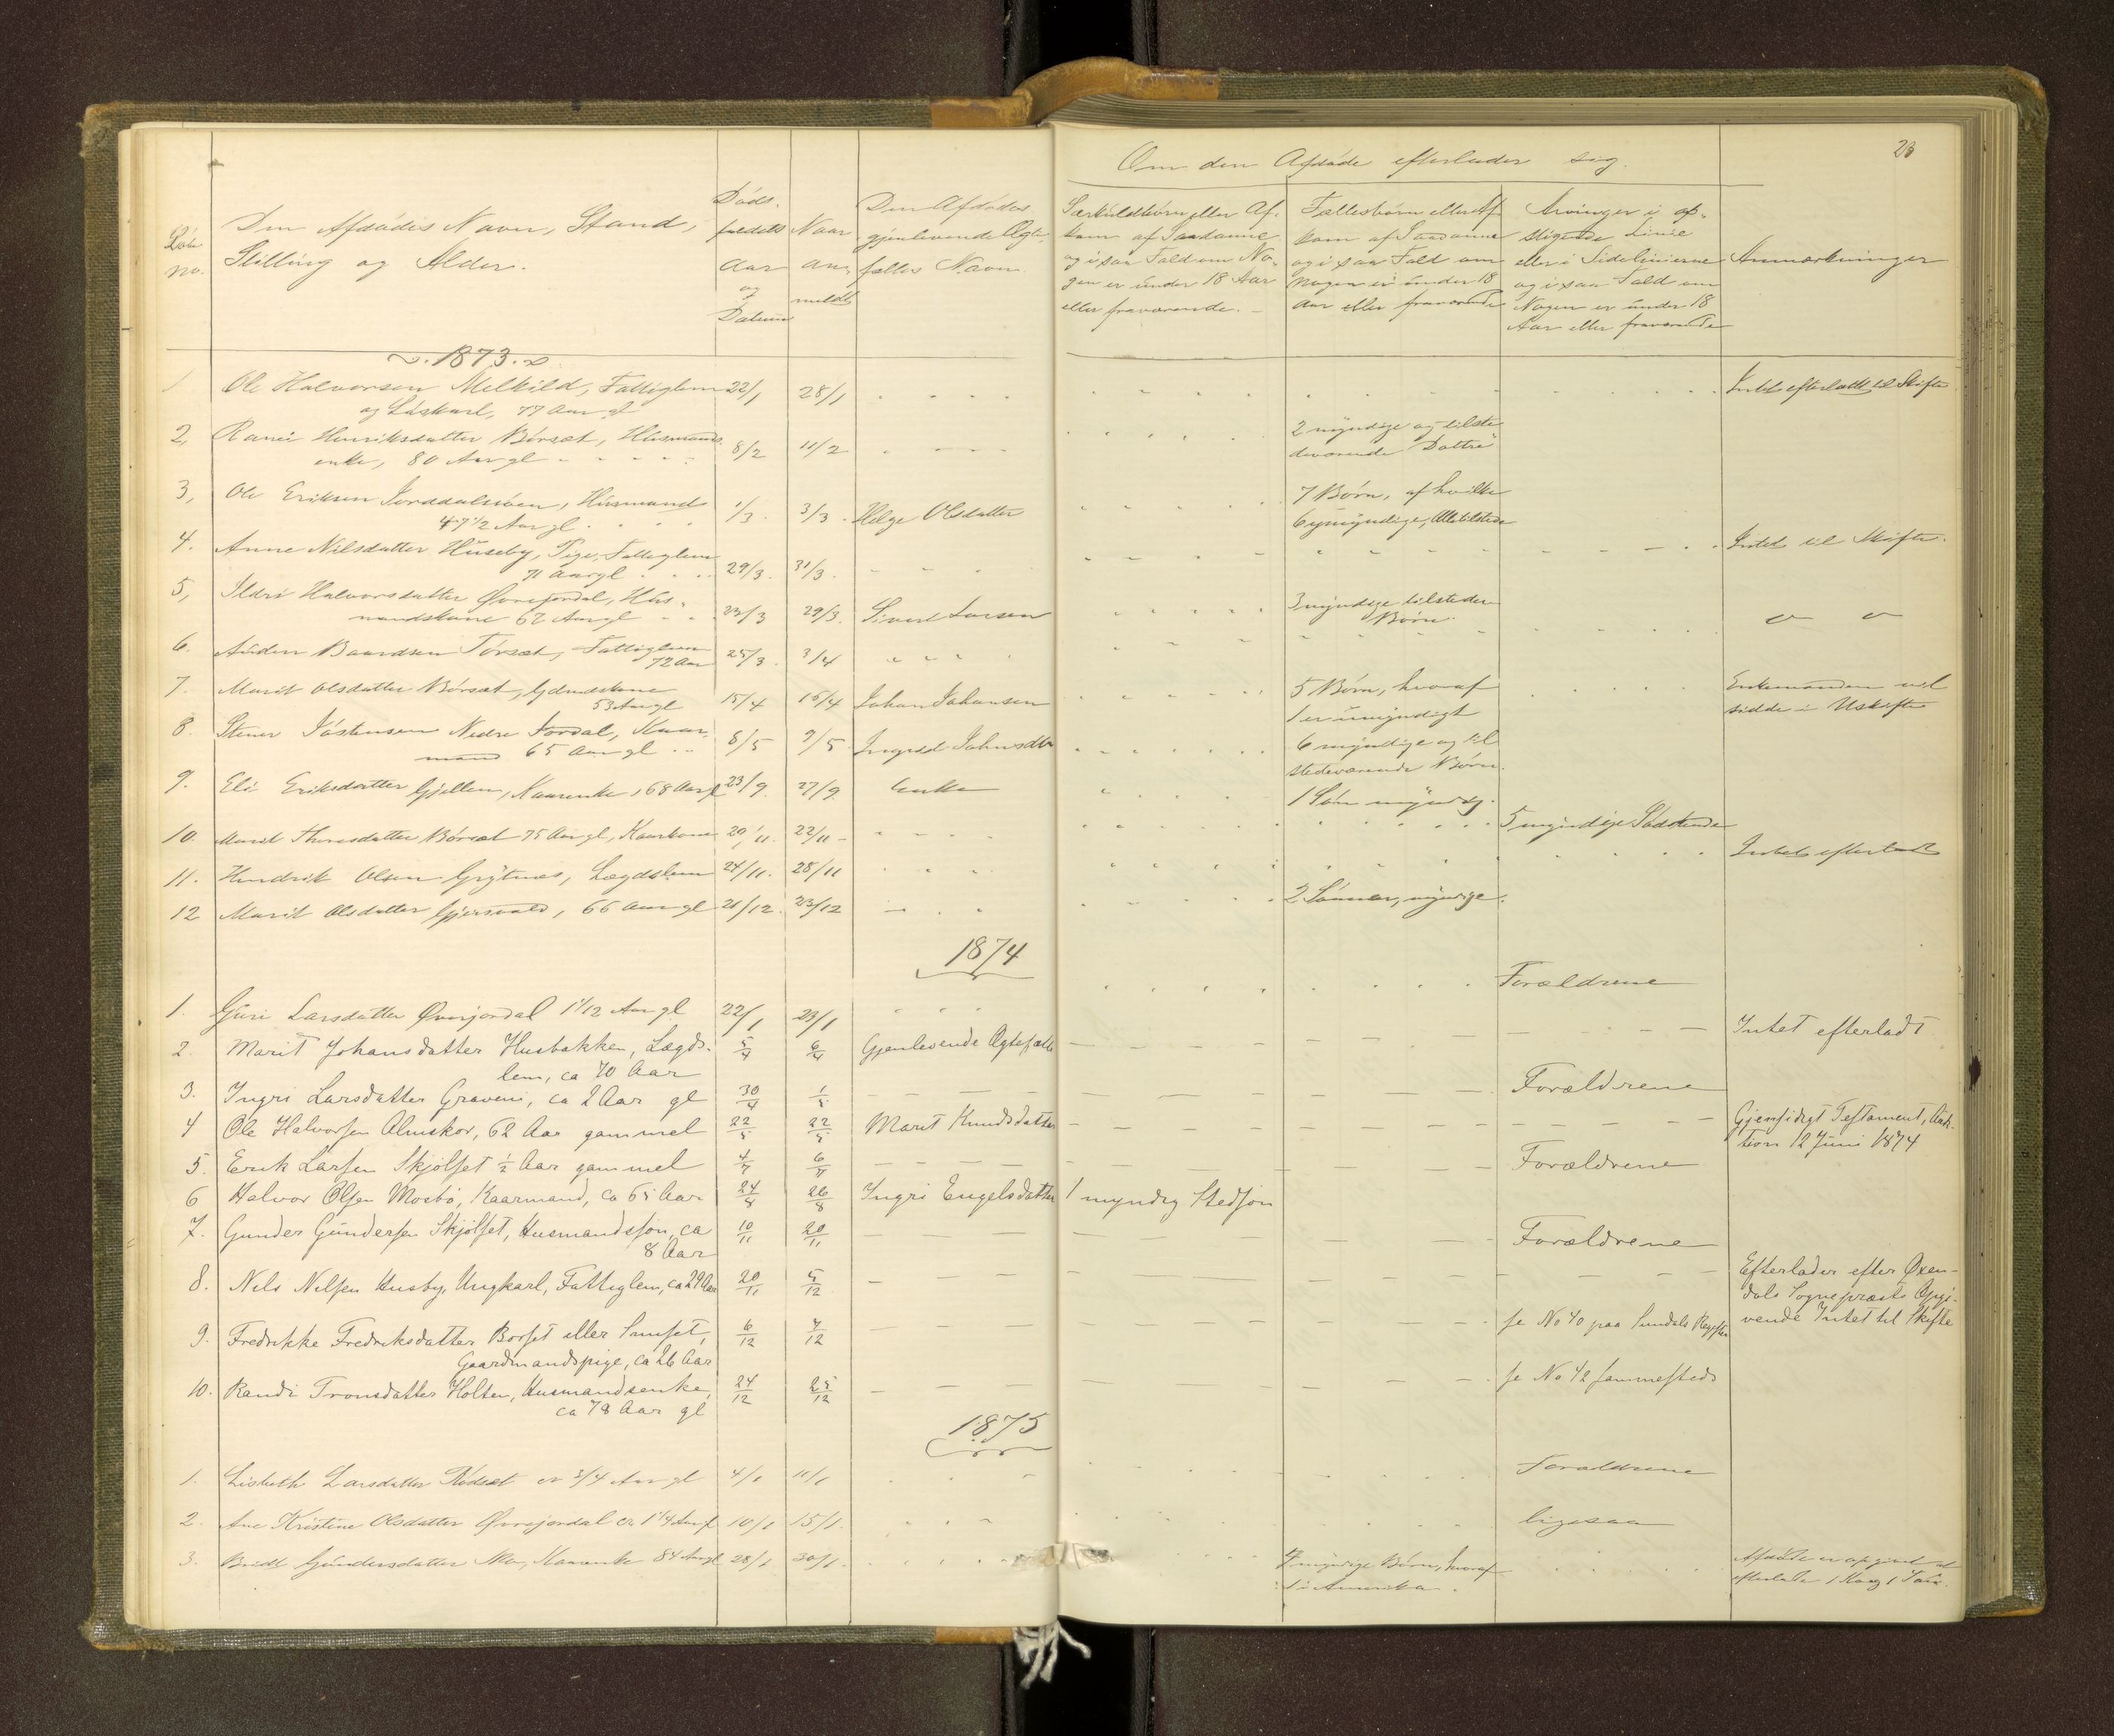 23
Om den Afdöde efterlader sig.
Löbe no.
Den Afdödes Navn, Stand, Stilling og Alder.
Döds- faldets Aar og Datum
Naar an- meldt
Den Afdödes gjenlevende Ægte- fælles Navn
Særkuldbörn eller Af- kom af Saadanne og i saa Fald om No- gen er under 18 Aar eller fraværende.
Fællesbörn eller Af- kom af Saadanne og i saa Fald om Nogen er under 18 Aar eller fraværende
Arvinger i op- stigende Linie eller i Sidelinierne og i saa Fald om Nogen er under 18 Aar eller fraværende
Anmærkninger
1873.
1. Ole Halvorsen Melkild, Fattiglem 22/1 28/1 Intet efterladt til Skifte
og Löskarl, 77 Aar gl
2, Henriksdatter Börsæt, Husmands- 8/2 11/2 2 myndige og tilste
enke, 80 Aar gl deværende Döttre
3, Ole Eriksen, Husmand 1/3 3/3 Helge Olsdatter 7 Börn, af hvilke
47 1/2 Aar gl 6 umyndige, Alle tilstede
4. Anne Nilsdatter Huseby, Pige, Fattiglem 29/3 31/3 Intet til Skifte.
71 Aar gl
5, Ildri Halvorsdatter Øvrejordal, Hus- 23/3 29/3. Sivert Larsen 3 myndige tilstede
mandskone 62 Aar gl Börn.
6. Baardsen Torset, Fattiglem 25/3 3/4
72 Aar
7. Marit Olsdatter Börsæt, Gdmdskone 15/4 16/4 Johan Johansen 5 Börn, hvoraf Enkemanden vil
53 Aar gl 1 er umyndigt sidde i Uskifte
8. Stener Jöstensen Nedre Jordal, Kaar- 8/5 9/5 Ingrid Johnsdtr 6 myndige og til
mand 65 Aar gl stedeværende Börn.
9. Eli Eriksdatter Gjellem, Kaarenke, 68 Aar gl 23/9 27/9 Enke 1 Sön myndig.
10. Marit Thoresdatter Börsæt 75 Aar gl, Kaarkone 20/11 22/11 5 myndige Södskende
11. Hendrik Olsen Grytnes, Lægdslem 24/11. 28/11 Intet efterladt
12 Marit Olsdatter Gjersvold, 66 Aar gl 21/12. 23/12 2 Sönner, myndige.
1874
1. Guri Larsdatter Øvrejordal 1 1/12 Aar gl 22/1 23/1 Forældrene
2. Marit Johansdatter Husbakken, Lægds- 5/4 6/4 Gjenlevende Ægtefælle Intet efterladt
lem, ca 70 Aar
3. Ingri Larsdatter Graven, ca 2 Aar gl 30/4 1/5 Forældrene
4 Ole Halvorsen Almskor, 62 Aar gammel 22/5 22/5 Marit Knudsdatter Gjensidigt Testament, Auk-
tion 12 Juni 1874
5. Erik Larsen Skjölset 1/2 Aar gammel 4/7 6/7 Forældrene
6 Halvor Olsen Mosbö, Kaarmand, ca 65 Aar 24/8 26/8 Ingri Engelsdatter 1 myndig Stedsön
7. Gunder Gundersen Skjölset, Husmandssön, ca 10/11 20/11 Forældrene
8 Aar
8. Nils Nilsen Husby, Ungkarl, Fattiglem, ca 29 Aar 20/11 5/12 Efterlader efter Øxen-
dals Sognepræsts Opgi-
vende Intet til Skifte
9. Fredrikke Fredriksdatter Borset eller Sunset, 6/12 7/12 se No 40 paa Sundals Register
Gaardmandspige, ca 26 Aar
10. Randi Tronsdatter Holten, Husmandsenke, 24/12 25/12 se No 42 sammesteds
ca 78 Aar gl
1875
1. Lisbeth Larsdatter Rödset ca 3/4 Aar gl 4/1 11/1 Forældrene
2. Ane Kristine Olsdatter Øvrejordal ca 1 1/4 Aar gl 10/1 15/1. ligesaa
3. Gundersdatter, Kaarenke 84 Aar gl 28/1 30/1. 4 myndige Börn, hvoraf Afdöde er opgivet at
1 i Amerika. efterlade 1 Ko og 1 Sau.